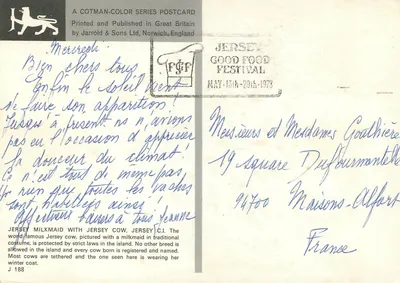 A COTMAN-COLOR SERIES POSTCARD
Printed and Published in Great Britain
by Jarrold & Sons Ltd, Norwich, England
JERSEY
GOOD FOOD
FESTIVAL
Mercredi.
Bien chers tous
Enfin le soleil vient
de faire son apparition!
Jusqu'à présent ns n'avions
pas eu l'occasion d'apprécier
la douceur du climat!
Ce n'est tout de même pas
que toutes les vaches
sont habillées ainsi!
Affectueux baisers à tous Jeanne
Messieurs et Mesdames
19 square Dufourmantelle
94700 Maisons-Alfort
France
JERSEY MILKMAID WITH JERSEY COW, JERSEY C.I. The
world famous Jersey cow, pictured with a milkmaid in traditional
costume, is protected by strict laws in the island. No other breed is
allowed in the island and every cow born is registered and named.
Most cows are tethered and the one seen here is wearing her
winter coat.
J 188